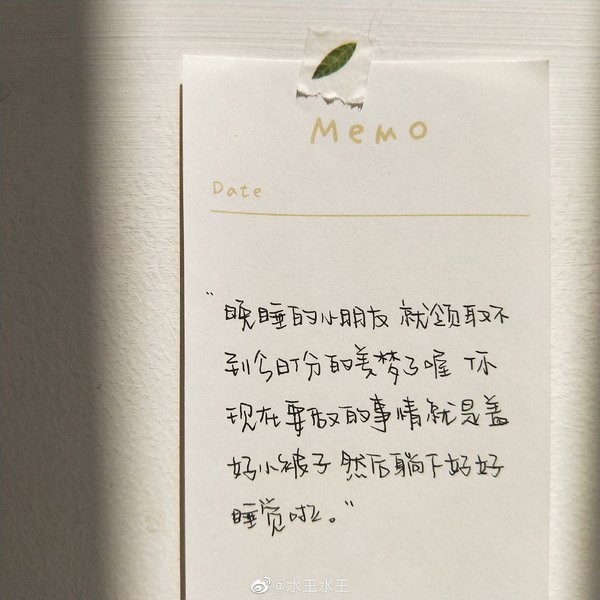 Memo
Date
"晚睡的小朋友 就领取不
到今日份的美梦了喔 你
现在要做的事情就是盖
好小被子 然后躺下好好
睡觉啦。"
@水王水王